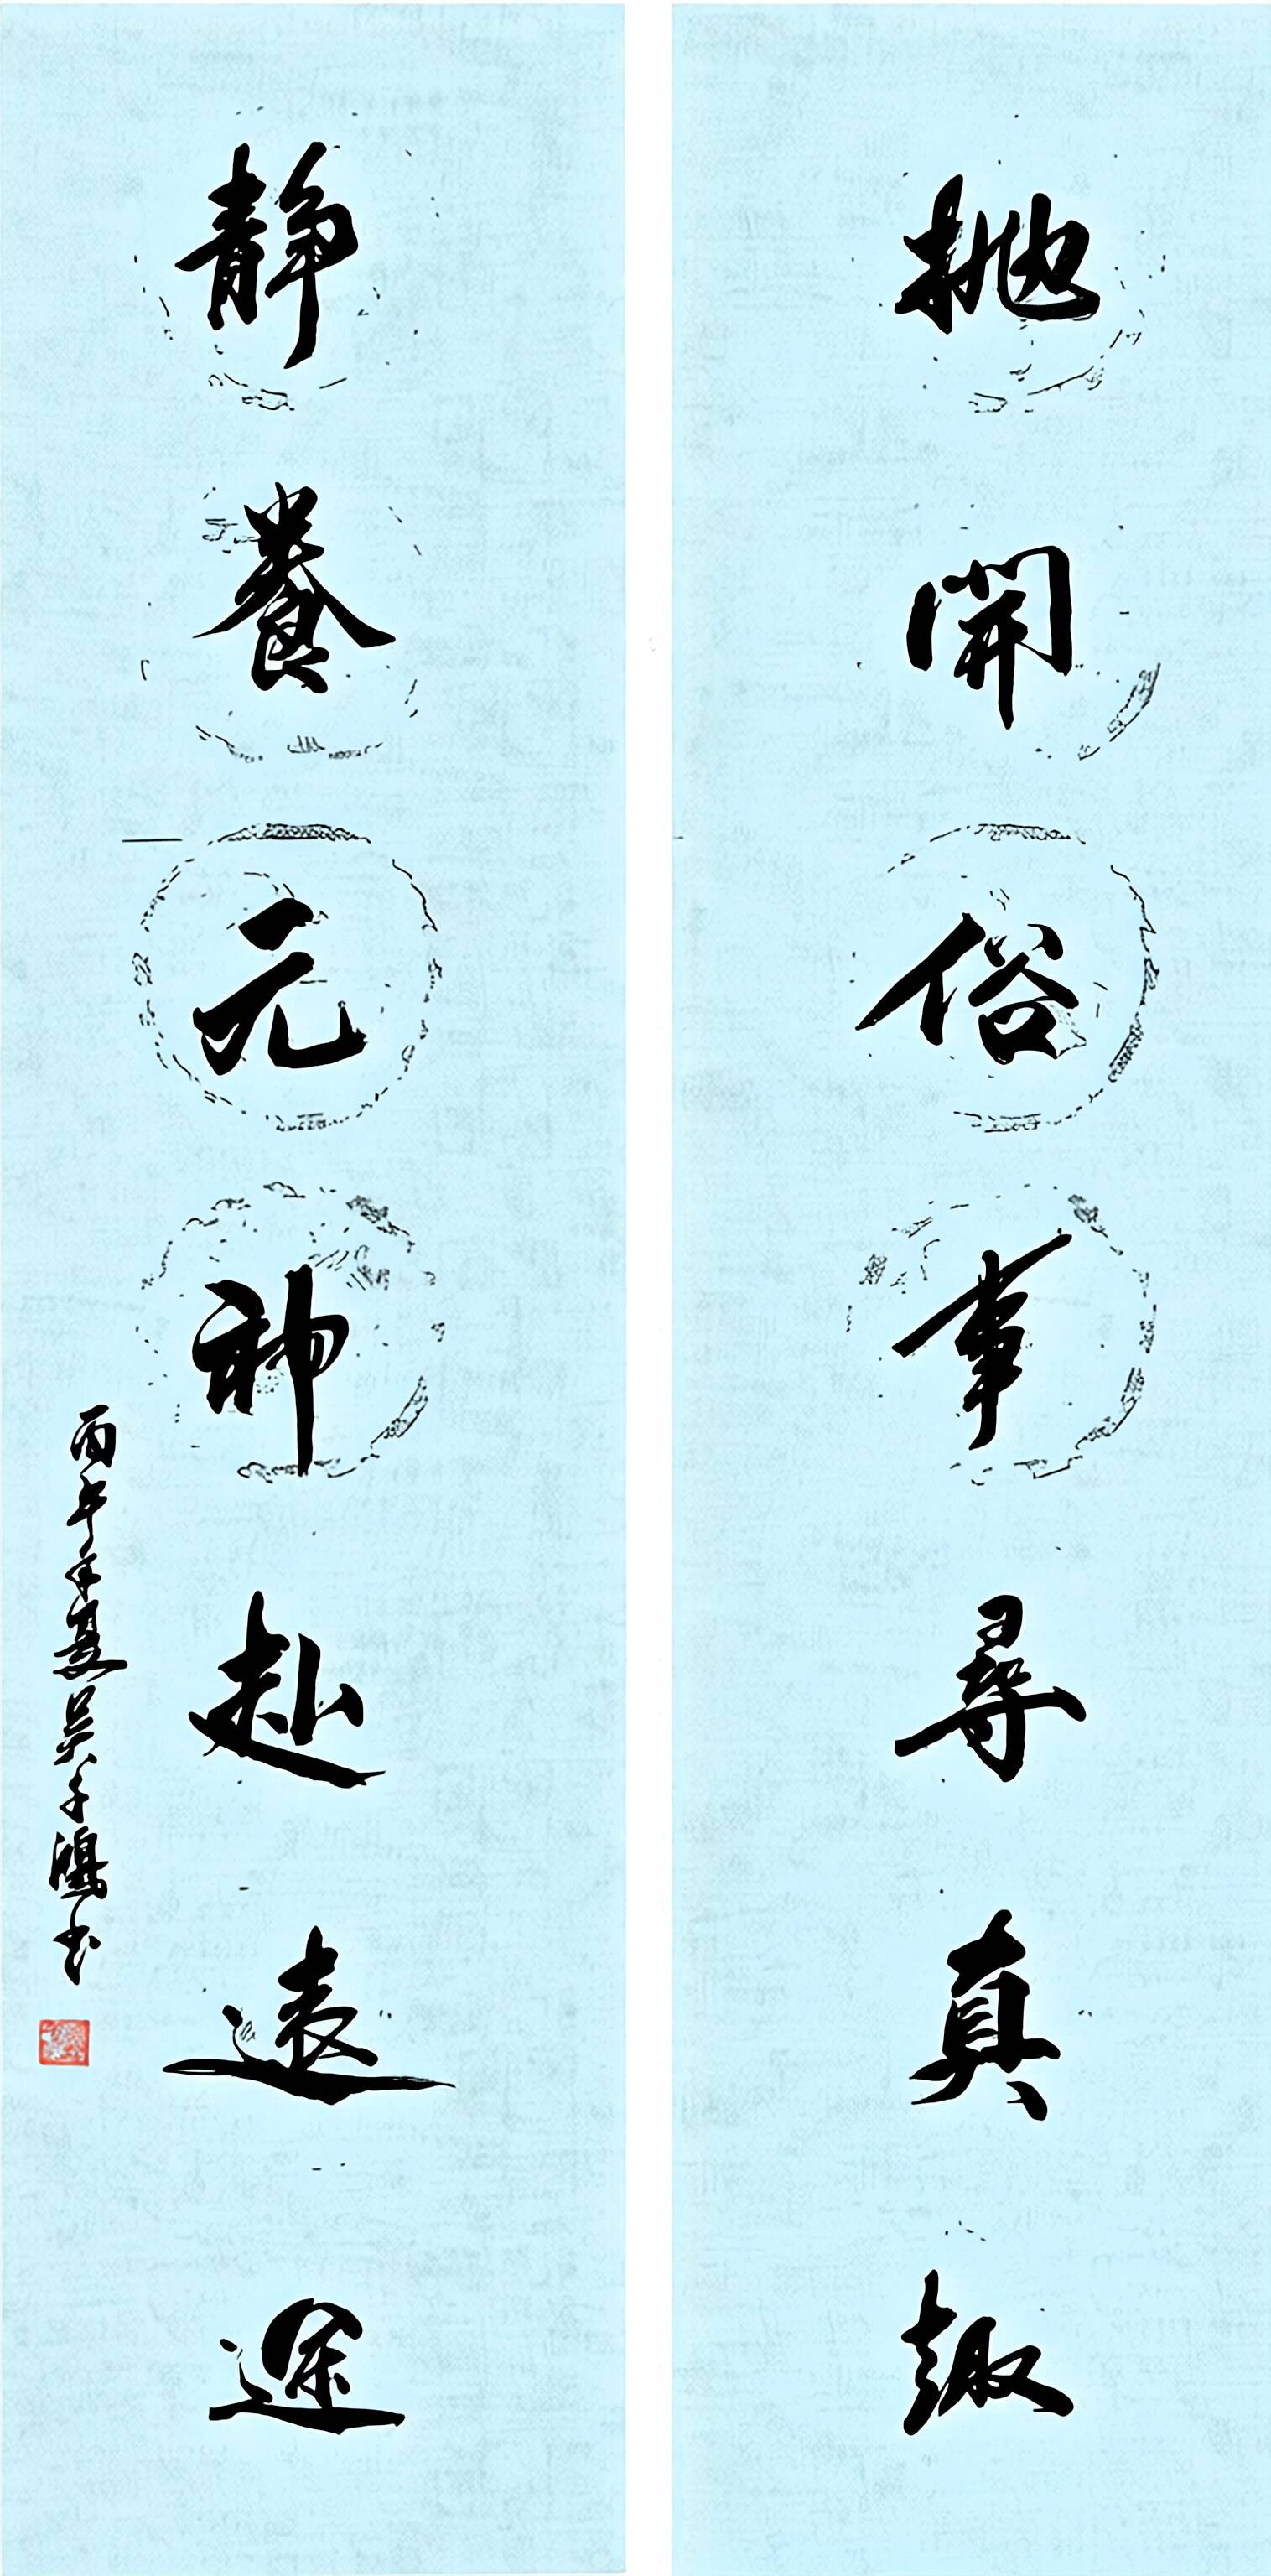 抛開俗事尋真趣
静養元神赴遠途
丙午年夏吴子鴻书